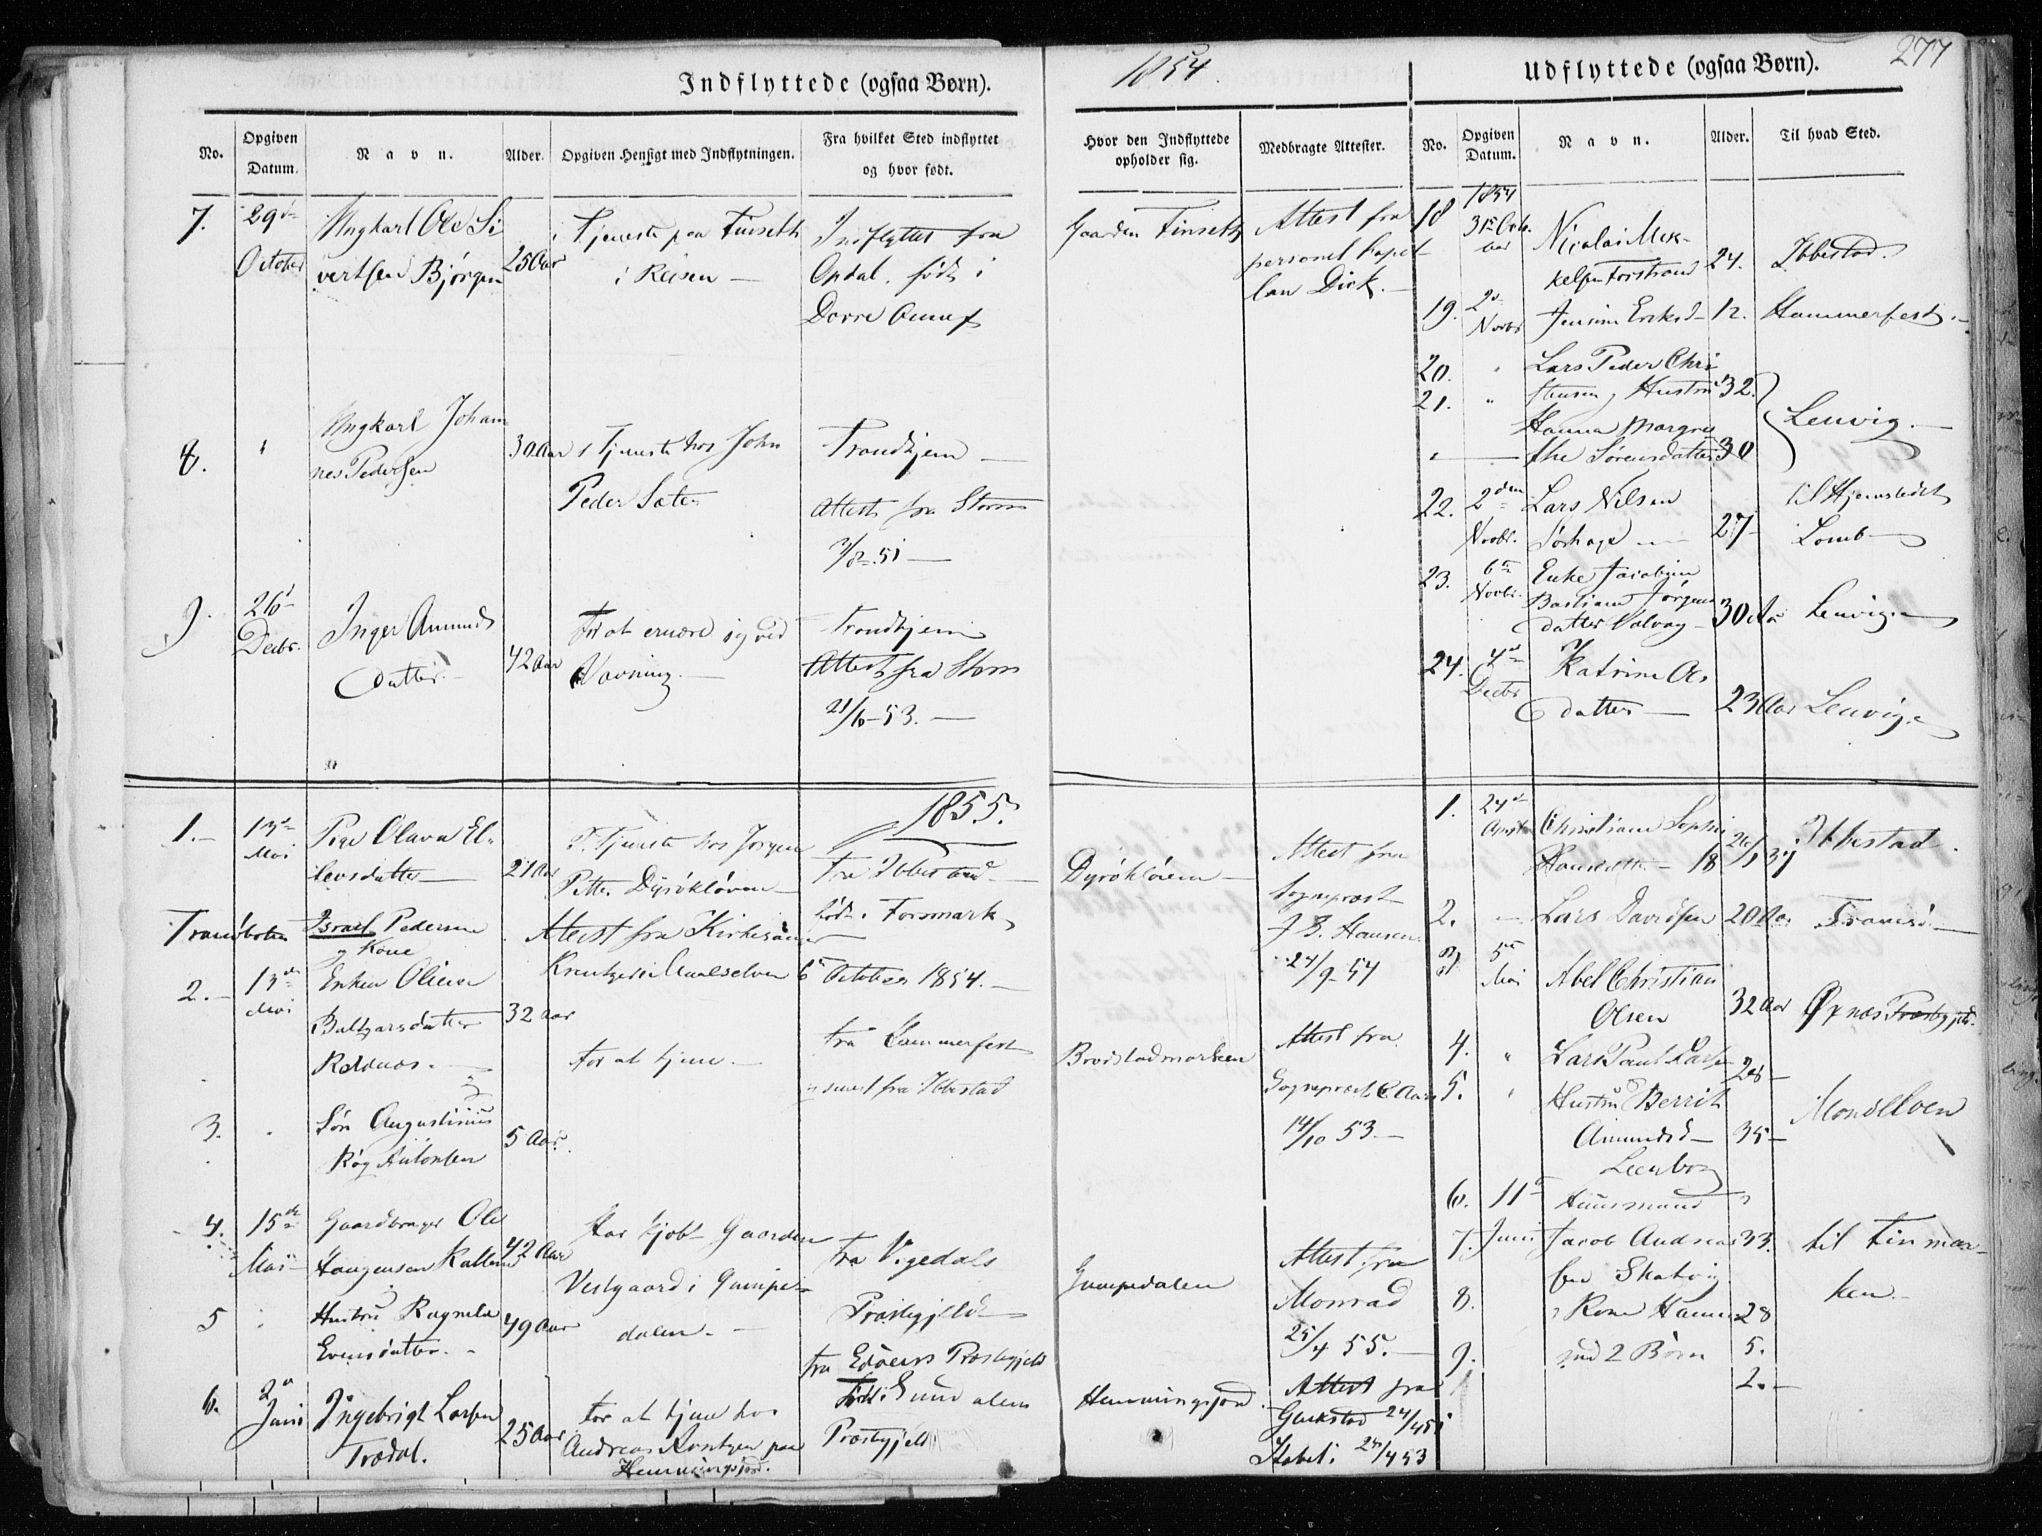 277
1854.
Indflyttede (ogsaa Børn).
Udflyttede (ogsaa Børn).
No.
Opgiven
Datum.
Navn.
Alder.
Opgiven Hensigt med Indflytningen.
Fra hvilket Sted indflyttet
og hvor født.
Hvor den Indflyttede
opholder sig.
Medbragte Attester.
No.
Opgiven
Datum.
Navn.
Alder.
Til hvad Sted.
7.
29de
October
Ungkarl Ole Si
vertsen Bjørgen
25 Aar
i Tjeneste paa Finseth
i Reisen
Indflyttet fra
Opdal. født i
Dovre Annex
Gaarden Finseth
Attest fra
personel Capel
lan Dick.
8.
"
Ungkarl Johan
nes Pedersen
30 Aar
i Tjeneste hos John
Peder Sæter
Trondhjem
Attest fra Storm
51
9.
26
Decbr.
Inger Amunds
Datter
42 Aar
For at ernære sig ved
Vævning.
Trondhjem
Attest fra Storm
21/6-53.
18
1854
31te Octo
ber
Nicolai Mik-
kelsen Forstrand
24.
Ibbestad.
19.
2de
Novbr
Jensine Eriksd
12.
Hammerfest
20.
"
Lars Peder Chri
21.
"
stensen og Hustru
32.
Hanna Margre
the Sørensdatter
30
Lenvig.
22.
2den
Novbr.
Lars Nilsen
27
til Hjemstedet
Lomb
23.
6te
Novbr.
Jørgens
datter
30 Aar
Lenvig
24.
4de
Decbr
Katrine Ols
datter
23 Aar
Lenvig
1855.
1.
13de
Mai
Pige Olava El-
levsdatter
21 Aar
I Tjeneste hos Jørgen
Petter Dyrøkløven
Fra Ibbestad
født i Forsmark
Dyrøkløven
Attest fra
Sogneprest
J. B. Hansen
24/9-54
Tranøbotn
Israel Pedersen
og Kone
Attest fra Kirkesanger
Kreutzer i Maalselven 6te October 1854.
2.
13de
Mai
Enken Oliva
Baltzarsdatter
32 Aar
For at tjene
fra Hammerfest
senest fra Ibbestad
Brødstadmarken
Attest fra
Sogneprest
14/10 53
3.
"
Søn Augustinus
Antonsen
5 Aar.
4.
15de
Mai
Gaardbruger Ole
42 Aar
Har kjøbt Gaarden
Vestgaard i Gumpe-
dalen.
fra Vigedals
Præstegjeld
Gumpedalen
Attest fra
Monrad
25/4 55.
5
"
Hustru Ragnild
Evensdatter
49 Aar
6.
2de
Juni
Ingebrigt Larsen
Trædal.
25 Aar
For at tjene hos
Andreas Arntzen paa
Hemmingsjord.
fra Edøens Præstegjeld
født i Sundalens
Præstegjeld
Hemmingsjord
Attest fra
24/4 53
1.
24de
Christiane Sophie
Hansdatter
18
Ibbestad.
2.
Lars Davidsen
20 Aar
Tromsø
3
5te
Mai
Abel Christian
Olsen
32 Aar
Øxnæs Præstegjeld.
4.
"
Lars Paul Larsen
28
5.
"
Hustru Berrit
Amundsd
35
6.
11te
Huusmand
7.
Juni
Jacob Andrea
sen Skatvig
33.
til Finmar-
ken.
8.
Kone Hanna
28
9.
med 2 Børn
5.
2.